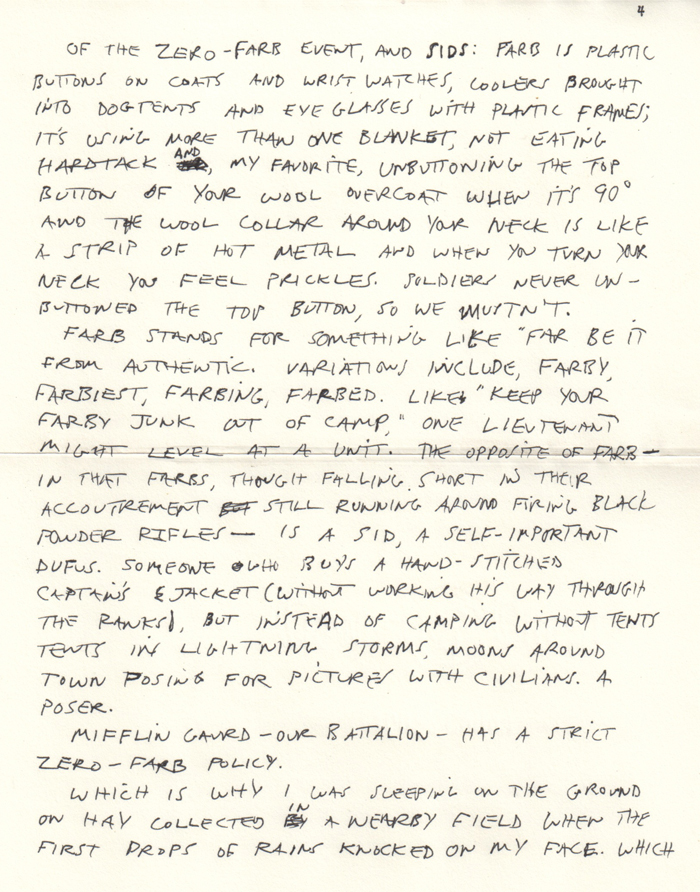 4
OF THE ZERO-FARB EVENT, AND SIDS: FARB IS PLASTIC
BUTTONS ON COATS AND WRIST WATCHES, COOLERS BROUGHT
INTO DOGTENTS AND EYE GLASSES WITH PLASTIC FRAMES;
IT'S USING MORE THAN ONE BLANKET, NOT EATING
HARDTACK AND, MY FAVORITE, UNBUTTONING THE TOP
BUTTON OF YOUR WOOL OVERCOAT WHEN IT'S 90°
AND THE WOOL COLLAR AROUND YOUR NECK IS LIKE
A STRIP OF HOT METAL AND WHEN YOU TURN YOUR
NECK YOU FEEL PRICKLES. SOLDIERS NEVER UN-
BUTTONED THE TOP BUTTON, SO WE MUSTN'T.
FARB STANDS FOR SOMETHING LIKE "FAR BE IT
FROM AUTHENTIC. VARIATIONS INCLUDE, FARBY,
FARBIEST, FARBING, FARBED. LIKE, "KEEP YOUR
FARBY JUNK OUT OF CAMP," ONE LIEUTENANT
MIGHT LEVEL AT A UNIT. THE OPPOSITE OF FARB—
IN THAT FARBS, THOUGH FALLING SHORT IN THEIR
ACCOUTREMENT STILL RUNNING AROUND FIRING BLACK
POWDER RIFLES— IS A SID, A SELF-IMPORTANT
DUFUS. SOMEONE WHO BUYS A HAND-STITCHED
CAPTAIN'S JACKET (WITHOUT WORKING HIS WAY THROUGH
THE RANKS), BUT INSTEAD OF CAMPING WITHOUT TENTS
TENTS IN LIGHTNING STORMS, MOONS AROUND
TOWN POSING FOR PICTURES WITH CIVILIANS. A
POSER.
MIFFLIN GAURD -OUR BATTALION- HAS A STRICT
ZERO-FARB POLICY.
WHICH IS WHY I WAS SLEEPING ON THE GROUND
ON HAY COLLECTED IN A NEARBY FIELD WHEN THE
FIRST DROPS OF RAINS KNOCKED ON MY FACE. WHICH